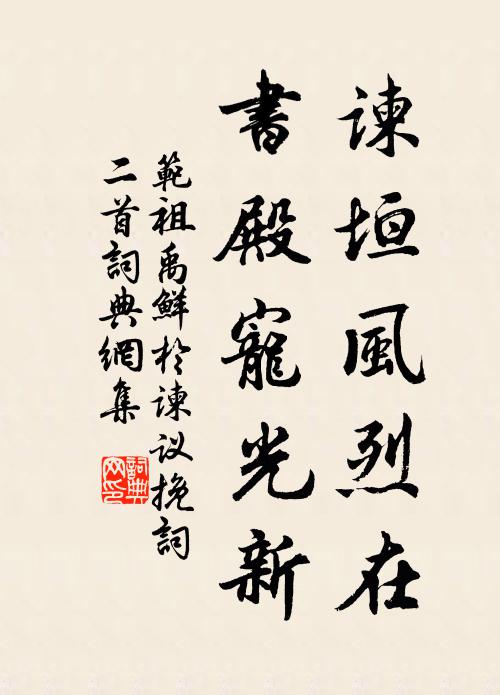 諫垣風烈在
書殿寵光新
範祖禹鮮於諫议挽詞
二首詞典網集
詞典
网印